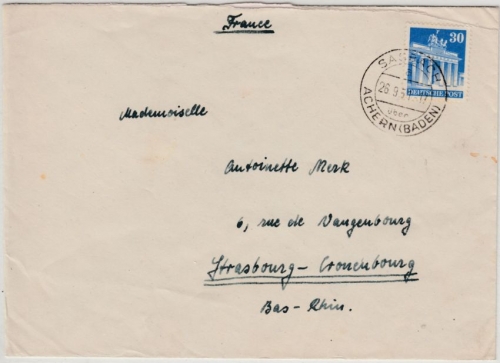 France
30
DEUTSCHE POST
26.9.5
über
ACHERN (BADEN)
Mademoiselle
Antoinette Merk
6, rue de Wangenbourg
Strasbourg - Cronenbourg
Bas-Rhin.